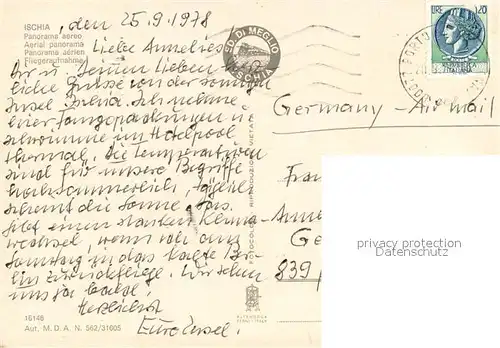 ISCHIA
Panorama aereo
Aerial panorama
Panorama aérien
Fliegeraufnahme
, den 25.9.1978
Liebe Annelies
ED. DI MEGLIO
ISCHIA
LIRE 120
PORTO
Dir u Deinen Lieben
liche Grüsse von der sonnigen
Insel Ischia. Ich nehme
hier Fangopackungen u
schwimme im Hotelpool
thermal. Die Temperaturen
sind für unsere Begriffe
hochsommerlich, täglich
scheint die Sonne. Das
gibt einen starken Klima-
wechsel, wenn ich am
Samstag in das kalte Ber-
lin zurückfliege. Wir sehen
uns ja bald.
Herzlichst
Eure Insel.
Germany - Air mail
Frau
Anne
Ge
839
RIPRODUZIONE VIETATA
privacy protection
Datenschutz
16146
Aut. M. D. A. N. 562/31605